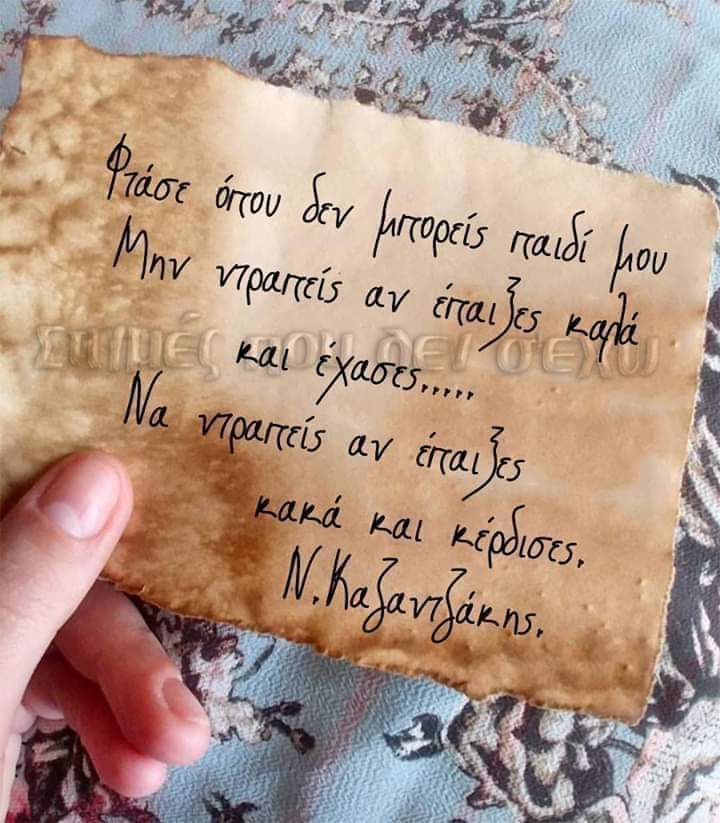 Φτάσε όπου δεν μπορείς παιδί μου
Μην ντραπείς αν έπαιξες καλά
και έχασες.....
Να ντραπείς αν έπαιξες
κακά και κέρδισες.
Ν. Καζαντζάκης.